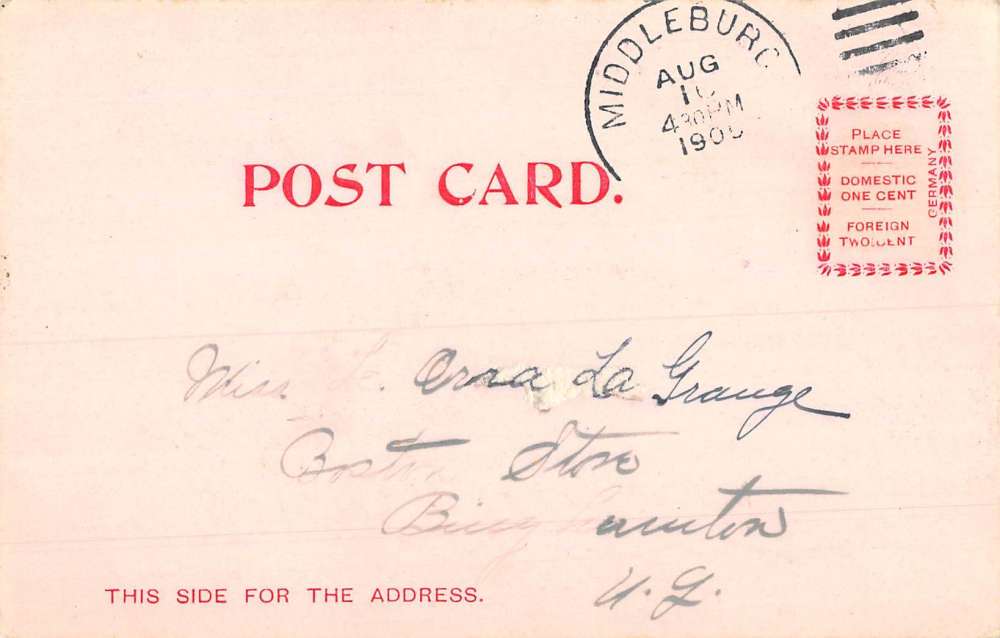 MIDDLEBURG
AUG
4 30 PM
POST CARD.
PLACE
STAMP HERE
DOMESTIC
ONE CENT
FOREIGN
TWO CENT
GERMANY
Miss Orra La Grange
Boston Store
Binghamton
N.Y.
THIS SIDE FOR THE ADDRESS.